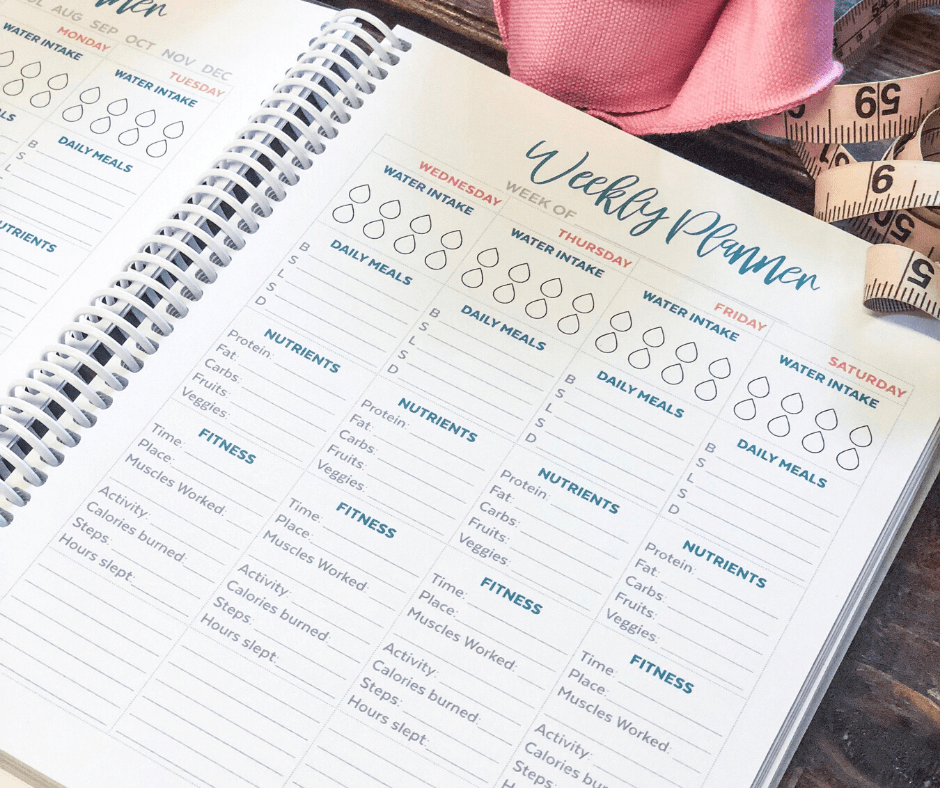 AUG SEP OCT NOV DEC
MONDAY
WATER INTAKE
TUESDAY
WATER INTAKE
DAILY MEALS
B
Weekly Planner
WEEK OF
WEDNESDAY
WATER INTAKE
DAILY MEALS
B
S
L
S
D
NUTRIENTS
Protein:
Fat:
Carbs:
Fruits:
Veggies:
FITNESS
Time:
Place:
Muscles Worked:
Activity:
Calories burned:
Steps:
Hours slept:
THURSDAY
WATER INTAKE
DAILY MEALS
B
S
L
S
D
NUTRIENTS
Protein:
Fat:
Carbs:
Fruits:
Veggies:
FITNESS
Time:
Place:
Muscles Worked:
Activity:
Calories burned:
Steps:
Hours slept:
FRIDAY
WATER INTAKE
DAILY MEALS
B
S
L
S
D
NUTRIENTS
Protein:
Fat:
Carbs:
Fruits:
Veggies:
FITNESS
Time:
Place:
Muscles Worked:
Activity:
Calories burned:
Steps:
Hours slept:
SATURDAY
WATER INTAKE
DAILY MEALS
B
S
L
S
D
NUTRIENTS
Protein:
Fat:
Carbs:
Fruits:
Veggies:
FITNESS
Time:
Place:
Muscles Worked:
Activity:
Calories burned:
Steps:
59
6
5